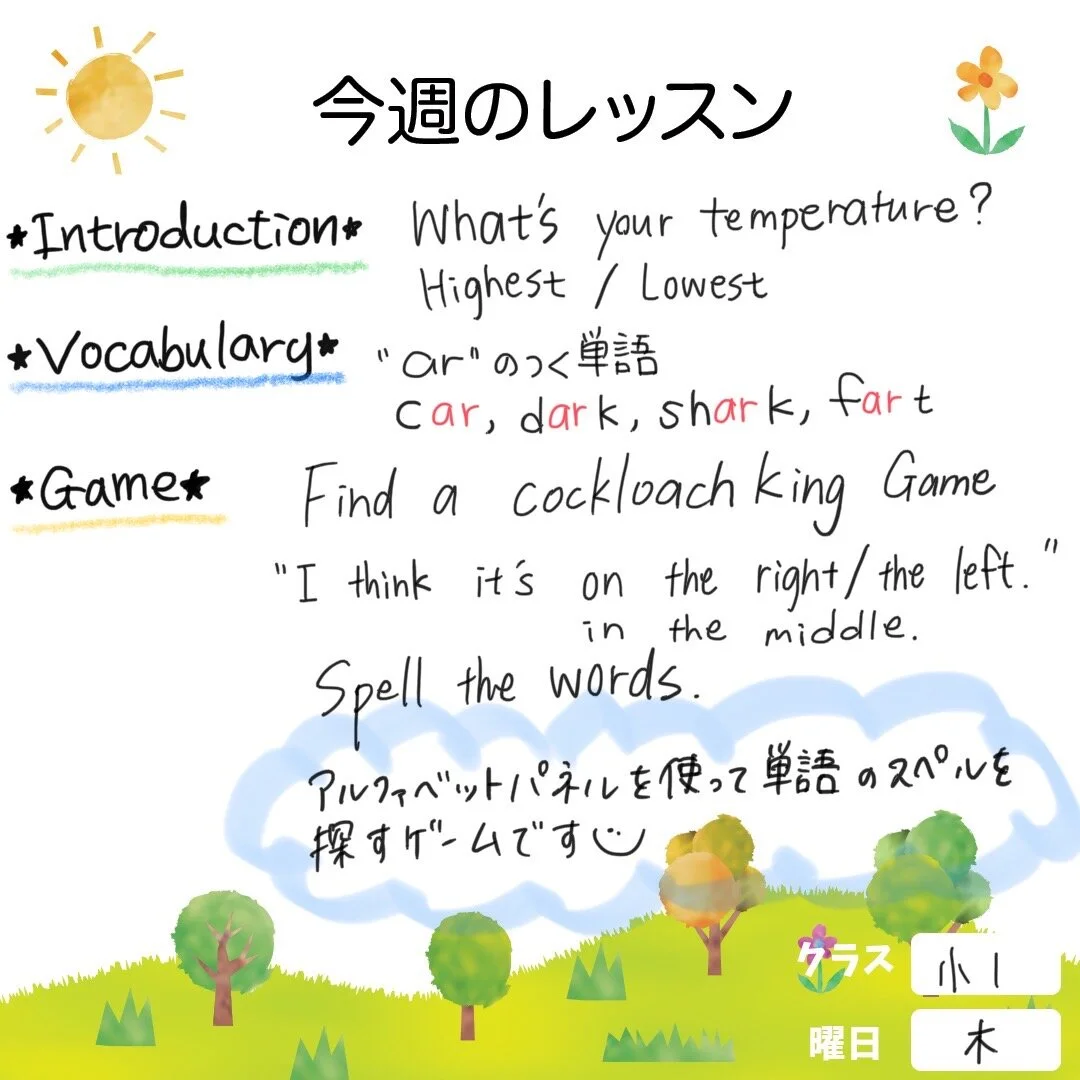 今週のレッスン
★Introduction★ What's your temperature?
Highest / Lowest
★Vocabulary★ "ar"のつく単語
car, dark, shark, fart
★Game★ Find a cockloach king Game
"I think it's on the right/the left."
in the middle.
Spell the words.
アルファベットパネルを使って単語のスペルを
探すゲームです
クラス 小1
曜日 木